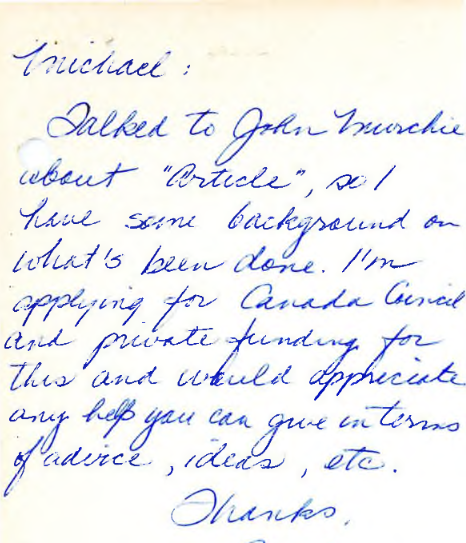 Michael :
Talked to John Murchie
about "Article", so I
have some background on
what's been done. I'm
applying for Canada Council
and private funding for
this and would appreciate
any help you can give in terms
of advice, ideas, etc.
Thanks,